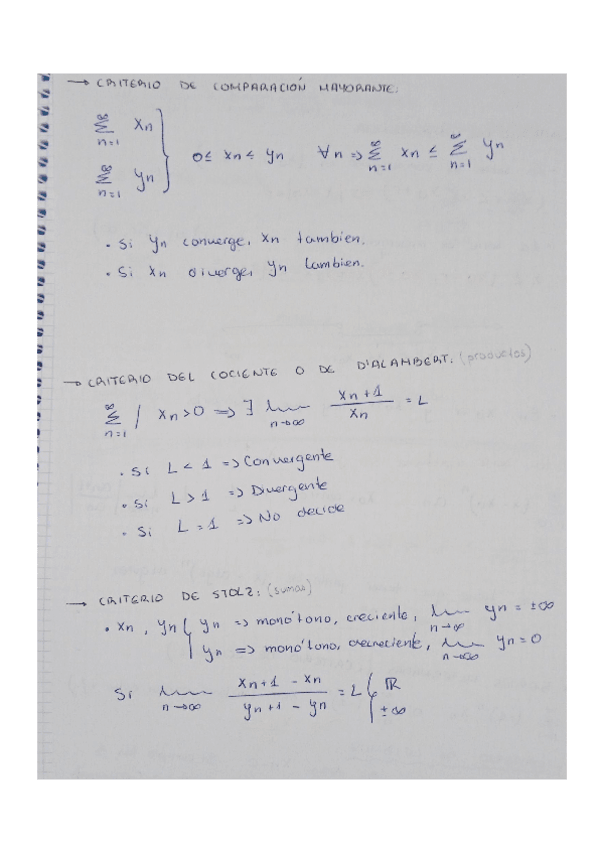 → CRITERIO DE COMPARACIÓN MAYORANTE:
∞ Σ n=1 xn } 0 ≤ xn ≤ yn ∀n ⇒ ∞ Σ n=1 xn ≤ ∞ Σ n=1 yn
∞ Σ n=1 yn
• Si yn converge, xn tambien.
• Si xn diverge, yn tambien.
→ CRITERIO DEL COCIENTE O DE D'ALAMBERT: (productos)
∞ Σ n=1 / xn > 0 ⇒ ∃ lim n→∞ xn+1 / xn = L
• Si L < 1 ⇒ Convergente
• Si L > 1 ⇒ Divergente
• Si L = 1 ⇒ No decide
→ CRITERIO DE STOLZ: (sumas)
• xn, yn { yn ⇒ monótono, creciente, lim n→∞ yn = ±∞
yn ⇒ monótono, decreciente, lim n→∞ yn = 0
Si lim n→∞ xn+1 - xn / yn+1 - yn = L { ℝ
±∞